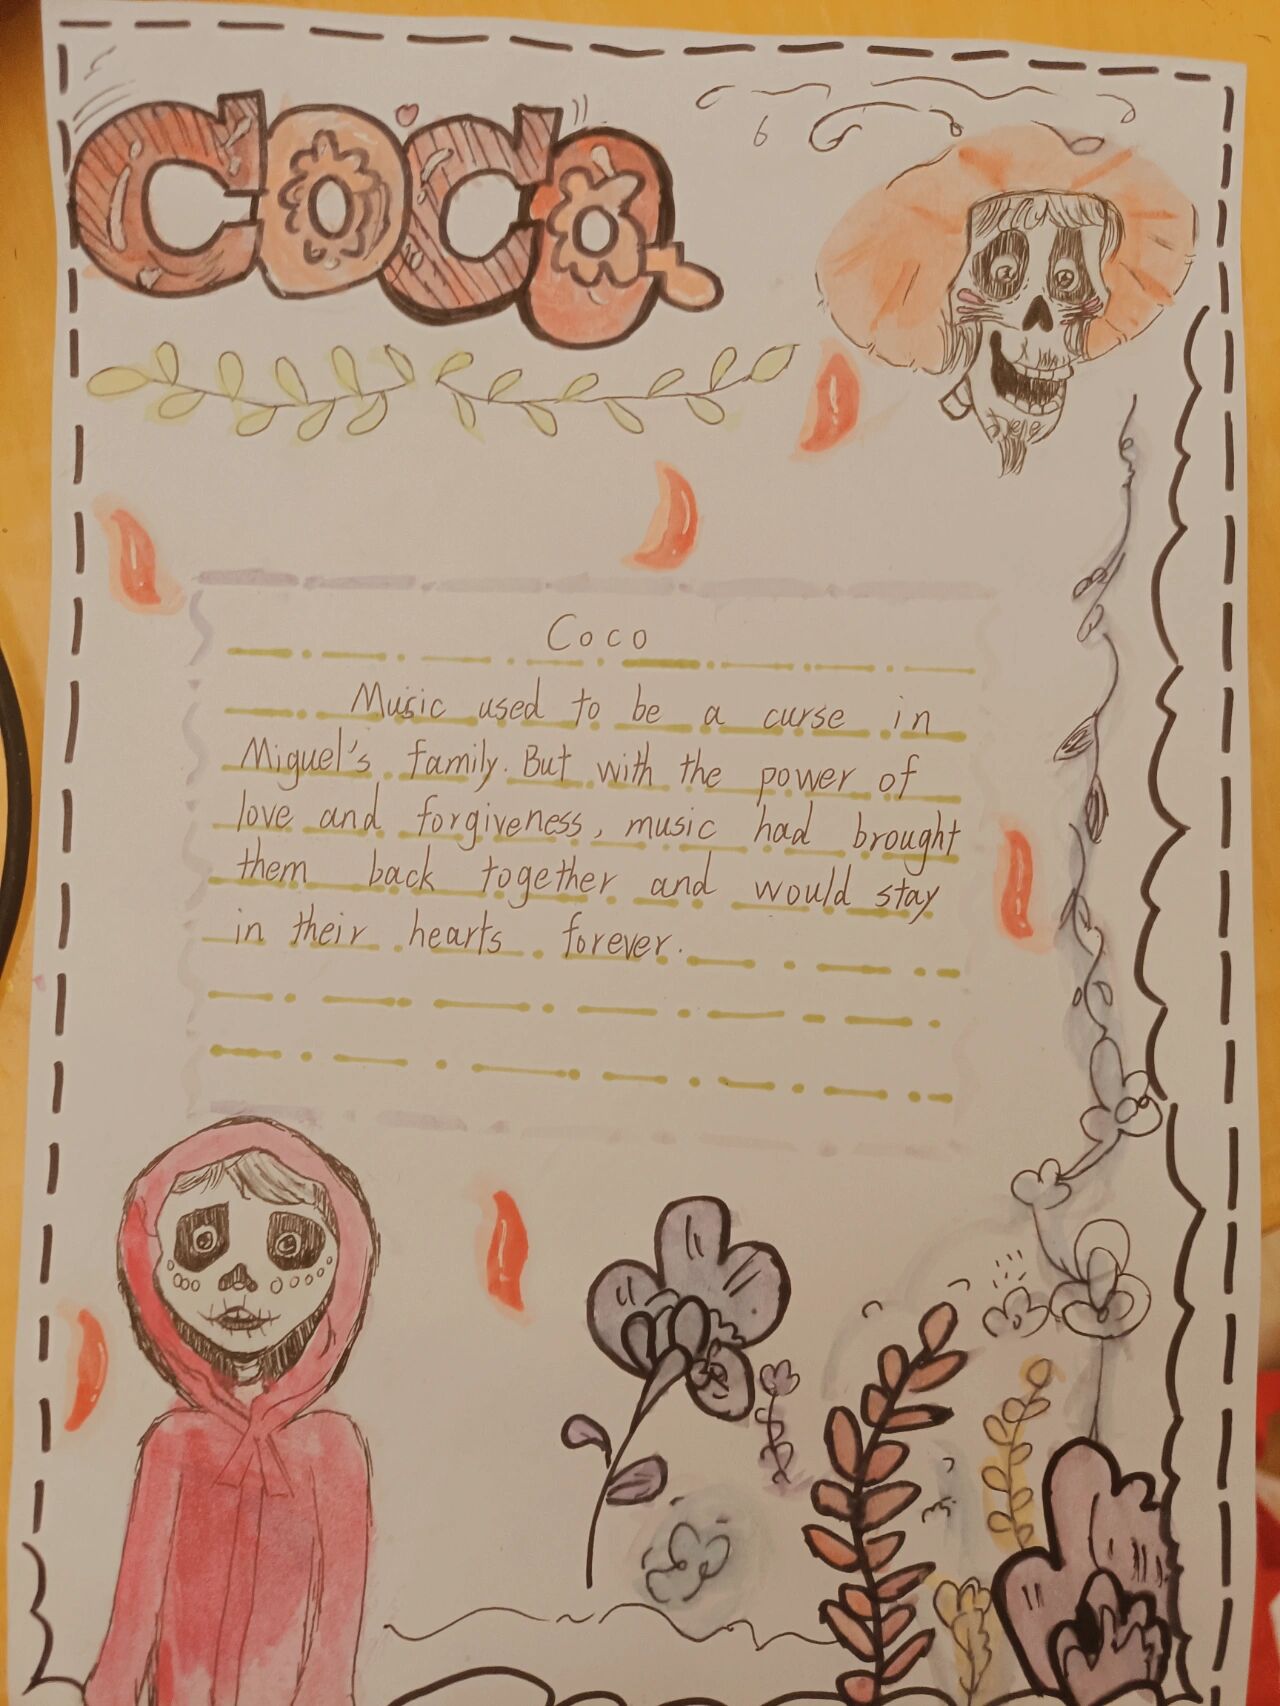 Coco
Coco
Music used to be a curse in
Miguel's family. But with the power of
love and forgiveness, music had brought
them back together and would stay
in their hearts forever.